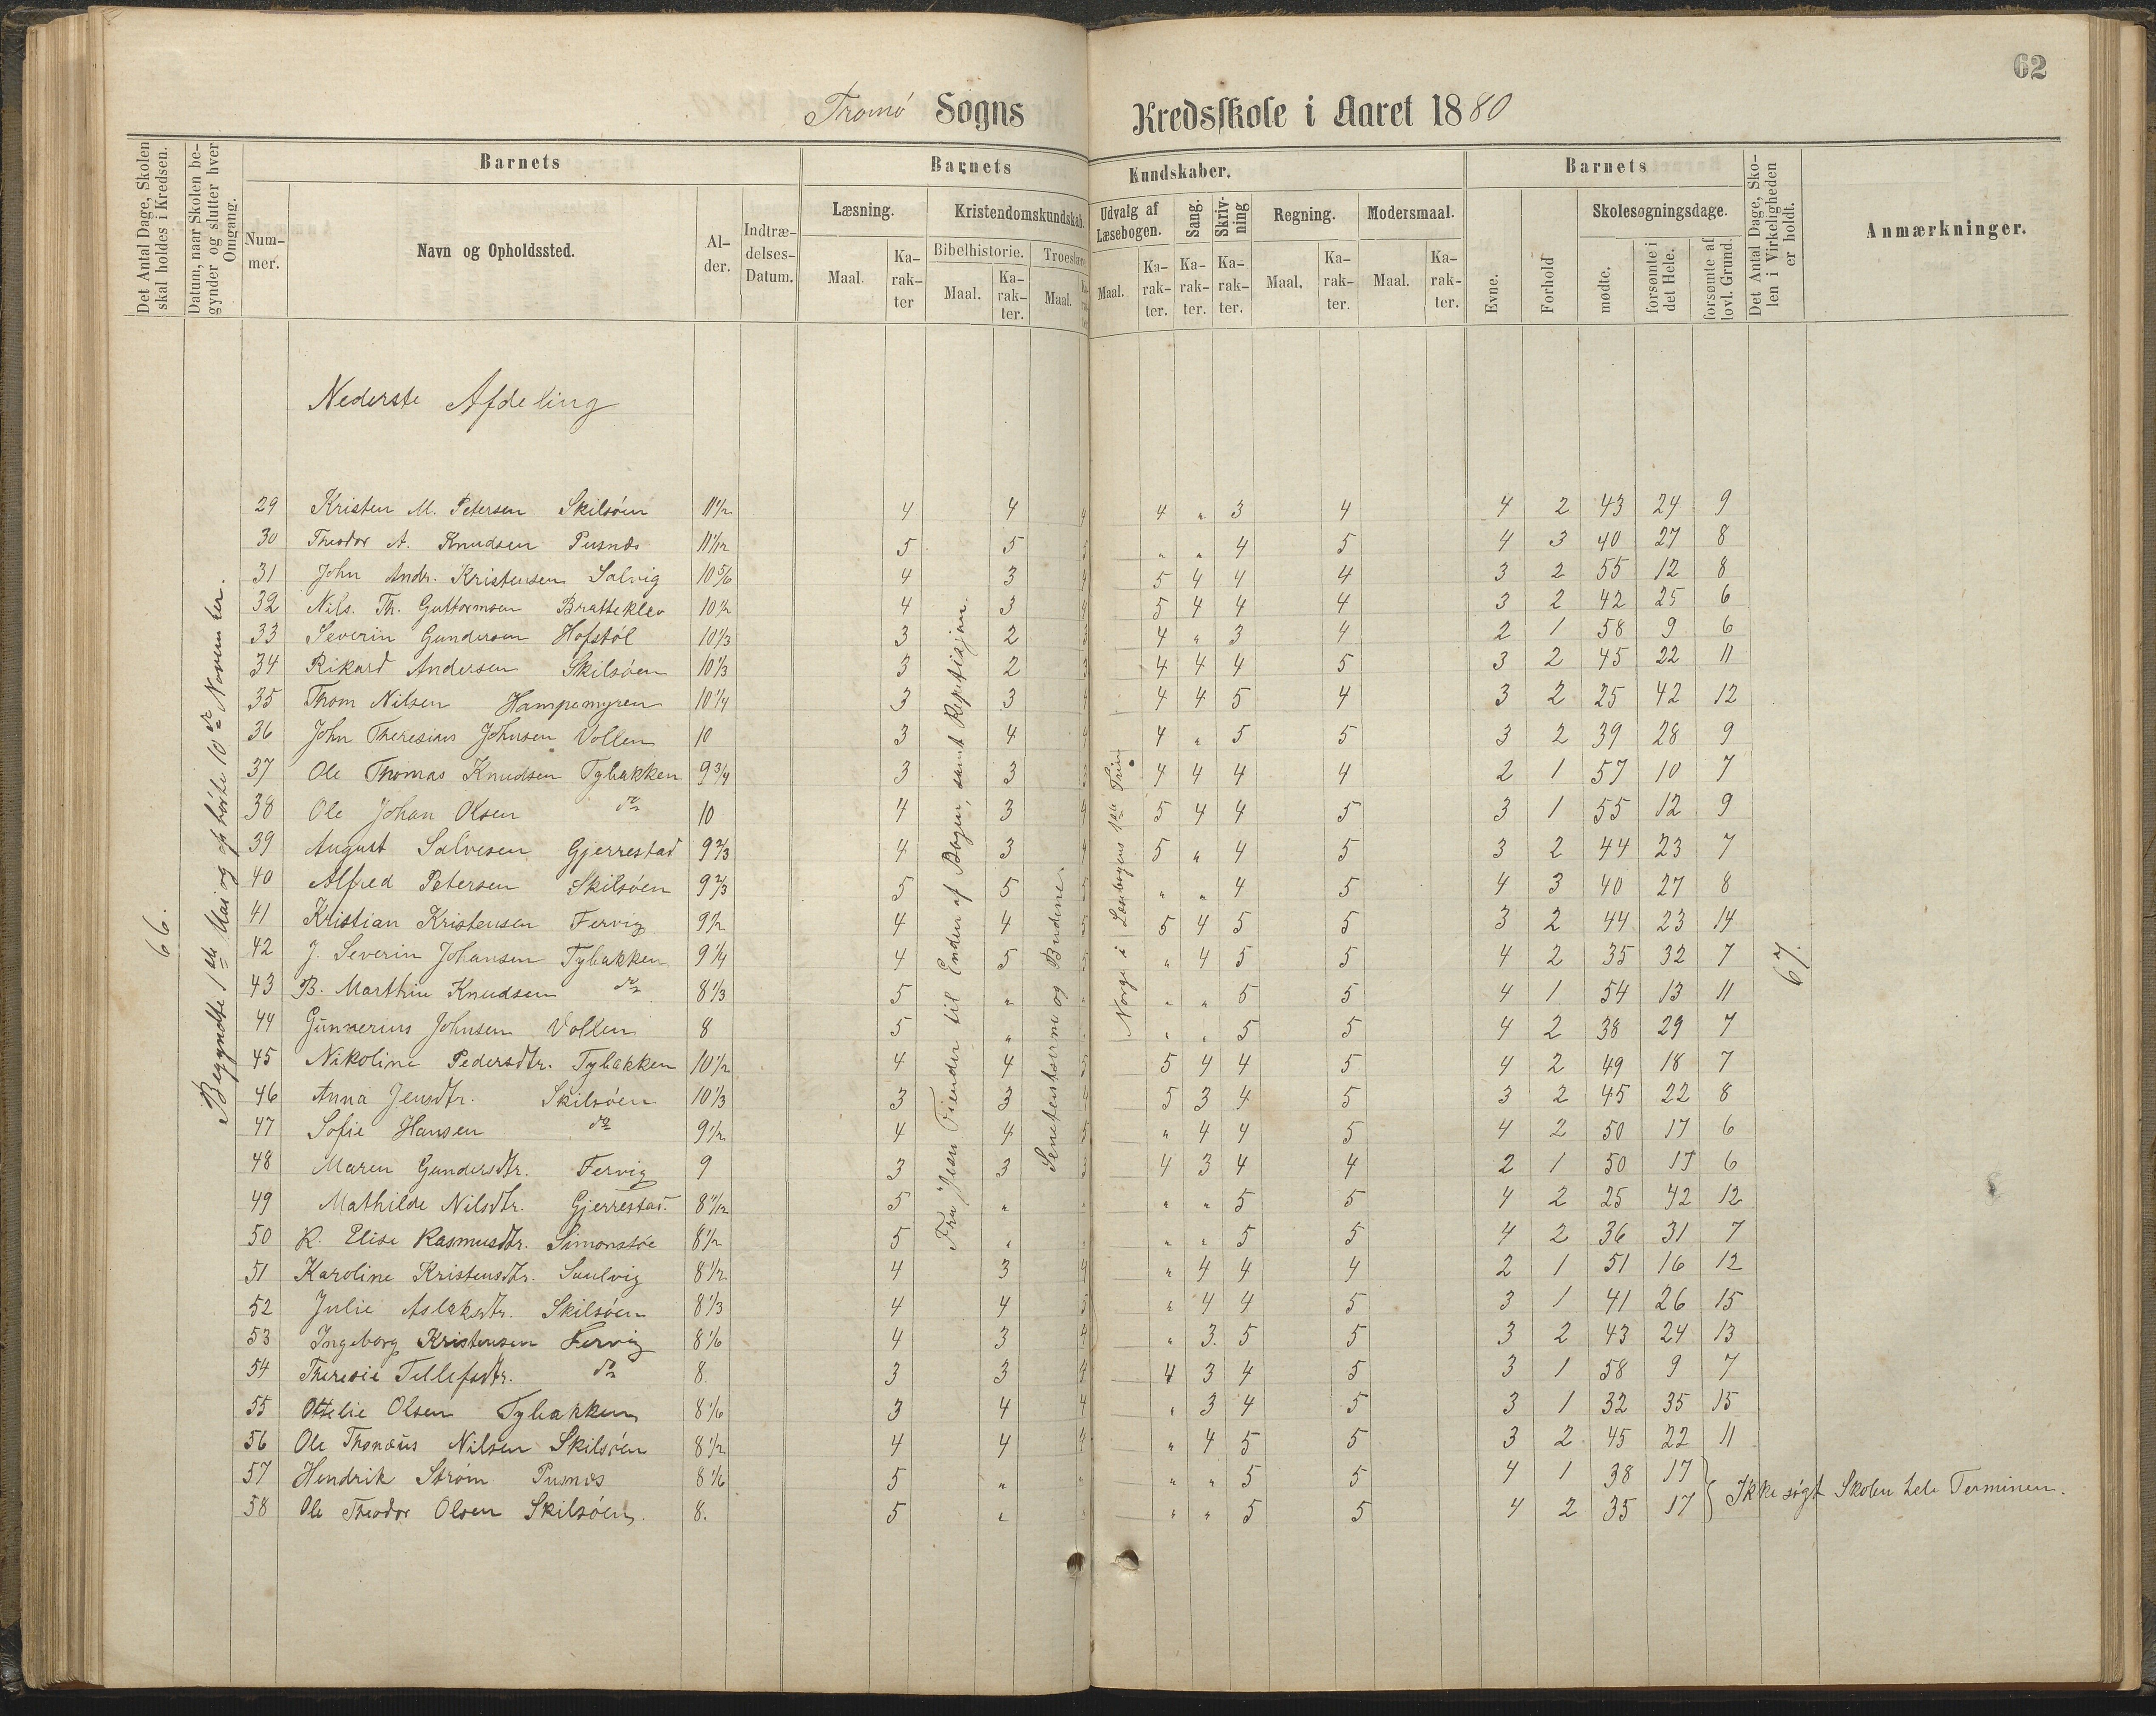 62
Tromö Sogns Kredsskole i Aaret 1880
Det Antal Dage, Skolen skal holdes i Kredsen.
Datum, naar Skolen begynder og slutter hver Omgang.
Barnets
Nummer.
Navn og Opholdssted.
Alder.
Indtrædelses-Datum.
Barnets Kundskaber.
Læsning.
Maal. Karakter
Kristendomskundskab.
Bibelhistorie.
Maal. Karakter.
Troeslære.
Maal.
Udvalg af Læsebogen.
Maal. Karakter.
Sang.
Karakter.
Skrivning
Karakter.
Regning.
Maal. Karakter.
Modersmaal.
Maal. Karakter.
Barnets
Evne.
Forhold
Skolesøgningsdage.
mødte.
forsømte i det Hele.
forsømte af lovl. Grund.
Det Antal Dage, Skolen i Virkeligheden er holdt.
Anmærkninger.
Nederste Afdeling
66.
Begyndte 1ste Mai og ophörte 10de November.
Fra "Jesu Fiender" til Enden af Bogen, samt Repetisjon.
Budene.
Norge i Læsebogens 1ste Trin
67.
29 Kristen M. Petersen Skilsöen 11 1/2 4 4 4 4 " 3 4 4 2 43 24 9
30 Theodor A. Knudsen Pusnæs 11 1/12 5 5 5 " " 4 5 4 3 40 27 8
31 John Andr. Kristensen Salvig 10 5/6 4 3 4 5 4 4 4 3 2 55 12 8
32 Nils. Th. Guttormsen Bratteklev 10 1/2 4 3 4 5 4 4 4 3 2 42 25 6
33 Severin Gundersen Hofstöl 10 1/3 3 2 3 4 " 3 4 2 1 58 9 6
34 Rikard Andersen Skilsöen 10 1/3 3 2 3 4 4 4 5 3 2 45 22 11
35 Thom Nilsen Hampemyren 10 1/4 3 3 4 4 4 5 4 3 2 25 42 12
36 John Theresius Johnsen Vollen 10 3 4 4 4 " 5 5 3 2 39 28 9
37 Ole Thomas Knudsen Tybakken 9 3/4 3 3 3 4 4 4 4 2 1 57 10 7
38 Ole Johan Olsen do 10 4 3 4 5 4 4 5 3 1 55 12 9
39 August Salvesen Gjerrestad 9 2/3 4 3 4 5 " 4 5 3 2 44 23 7
40 Alfred Petersen Skilsöen 9 2/3 5 5 5 " " 4 5 4 3 40 27 8
41 Kristian Kristensen Fervig 9 1/2 4 4 5 5 4 5 5 3 2 44 23 14
42 J. Severin Johansen Tybakken 9 1/4 4 5 5 " 4 5 5 4 2 35 32 7
43 B. Marthin Knudsen do 8 1/3 5 " " " " 5 5 4 1 54 13 11
44 Gunnerius Johnsen Vollen 8 5 " " " " 5 5 4 2 38 29 7
45 Nikoline Pedersdtr. Tybakken 10 1/2 4 4 5 5 4 4 5 4 2 49 18 7
46 Anna Jensdtr. Skilsöen 10 1/3 3 3 4 5 3 4 5 3 2 45 22 8
47 Sofie Hansen do 9 1/2 4 4 5 " 4 4 5 4 2 50 17 6
48 Maren Gundersdtr. Fervig 9 3 3 3 4 3 4 4 2 1 50 17 6
49 Mathilde Nilsdtr. Gjerrestad. 8 11/12 5 " " " " 5 5 4 2 25 42 12
50 K. Elise Rasmusdtr. Simonstöe 8 1/2 5 " " " " 5 5 4 2 36 31 7
51 Karoline Kristensdtr. Saulvig 8 1/2 4 3 4 " 4 4 4 2 1 51 16 12
52 Julie Aslaksdtr. Skilsöen 8 1/3 4 4 5 " 4 4 5 3 1 41 26 15
53 Ingeborg Kristensen Fervig 8 1/6 4 3 4 " 3 5 5 3 2 43 24 13
54 Theresie Tellefsdtr. do 8. 3 3 4 4 3 4 5 3 1 58 9 7
55 Ottelie Olsen Tybakken 8 1/6 3 4 4 " 3 4 5 3 1 32 35 15
56 Ole Thonæus Nilsen Skilsöen 8 1/2 4 4 4 " 4 5 5 3 2 45 22 11
57 Hendrik Ström Pusnæs 8 1/6 5 " " " " 5 5 4 1 38 17
58 Ole Theodor Olsen Skilsöen. 8. 5 " " " " 5 5 4 2 35 17 } Ikke sögt Skolen hele Terminen.